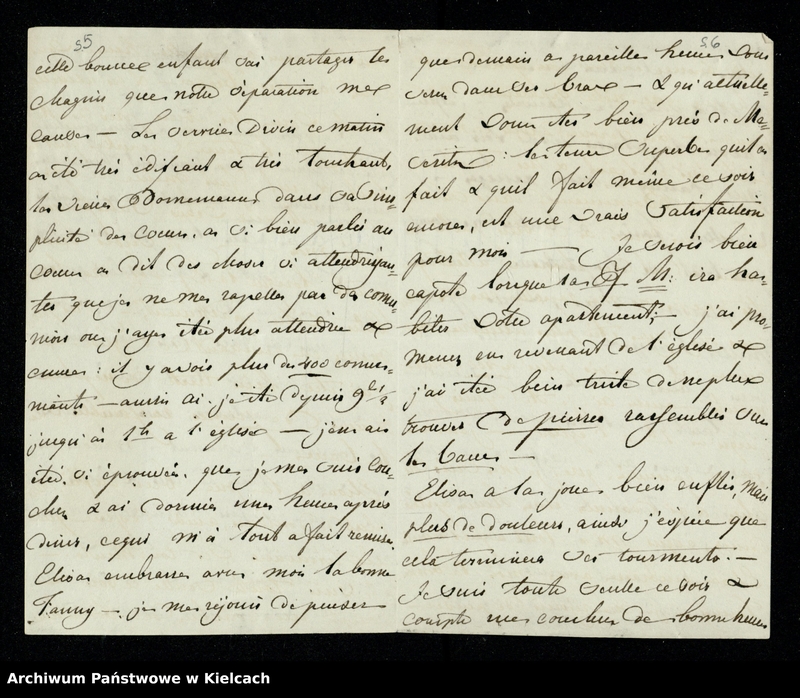 s.5
cette bonnee enfant sai partager les
chagrin que notre séparation me
cause — Le service Divin ce matin
a été très édifiant & très touchant,
le vieux dans sa sim-
plicité de coeur, a si bien parlée au
coeur a dit des choses si attendrissan-
tes que je ne me rapelles pas de comu-
nion ou j'ayes étée plus attendrie &
emues : il y avois plus de 400 comu-
niants — aussi ai-je été depuis 9 h 1/2
jusqu'às 1 h a l'église — j'en ai
étée si éprouvée que je me suis cou-
chée & ai dormie une heure après
diner, cequi m'a tout a fait remise.
Elisa embrasse avec moi la bonne
Fanny — je me rejouis de penser
s.6
que demain a pareille heure vous
serez dans ses bras — & qu'actuelle-
ment vous etes bien près de
: le tems superbe qu'il a
fait & qu'il fait même ce soir
encore, est une vraie satisfaction
pour moi — Je serois bien
capote lorsque la M: ira ha-
biter votre apartement; — j'ai pro-
menée en revenant de l'église &
j'ai étée bien triste de ne plus
trouver de pierres rassemblés sur
les bancs —
Elisa a la joue bien enflée, mais
plus de douleurs, ainsi j'éspère que
cela terminera ses tourments. —
Je suis toute seule ce soir &
compte me coucher de bonne heure
Archiwum Państwowe w Kielcach